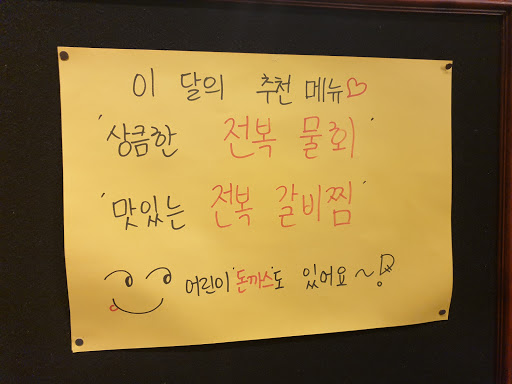 이 달의 추천 메뉴♡
'상큼한 전복 물회'
'맛있는 전복 갈비찜'
어린이 '돈까스'도 있어요~!